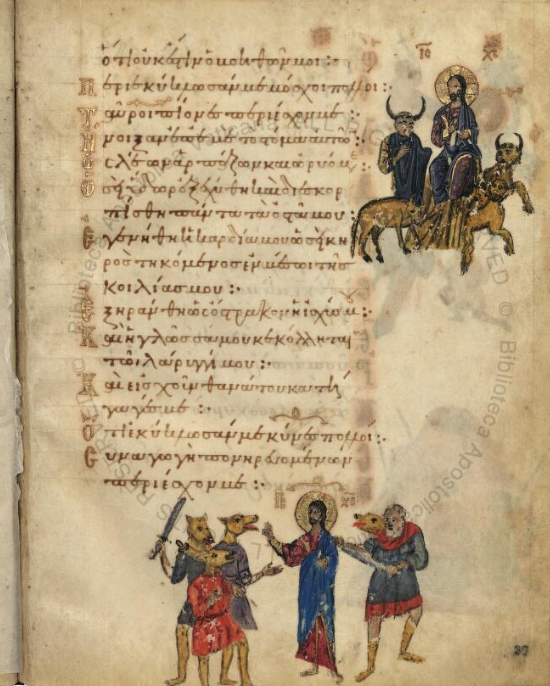 ὅτι οὐκ ἔστιν ὁ βοηθῶν μοι :·
Περιεκύκλωσάν με μόσχοι πολλοί :·
ταῦροι πίονες περιέσχον με
Ἤνοιξαν ἐπ' ἐμὲ τὸ στόμα αὐτῶν
ὡς λέων ἁρπάζων καὶ ὠρυόμενος
Ὡσεὶ ὕδωρ ἐξεχύθη καὶ διεσκορ
πίσθη πάντα τὰ ὀστᾶ μου
Ἐγενήθη ἡ καρδία μου ὡσεὶ κη
ρὸς τηκόμενος ἐν μέσῳ τῆς
κοιλίας μου :·
Ἐξηράνθη ὡς ὄστρακον ἡ ἰσχύς μου
Καὶ ἡ γλῶσσά μου κεκόλληται
τῷ λάρυγγί μου :·
Καὶ εἰς χοῦν θανάτου κατή
γαγές με :·
Ὅτι ἐκύκλωσάν με κύνες πολλοί :·
Συναγωγὴ πονηρευομένων
περιέσχον με :·
ΙΣ ΧΣ
ΙΣ ΧΣ
37
© Biblioteca Apostolica